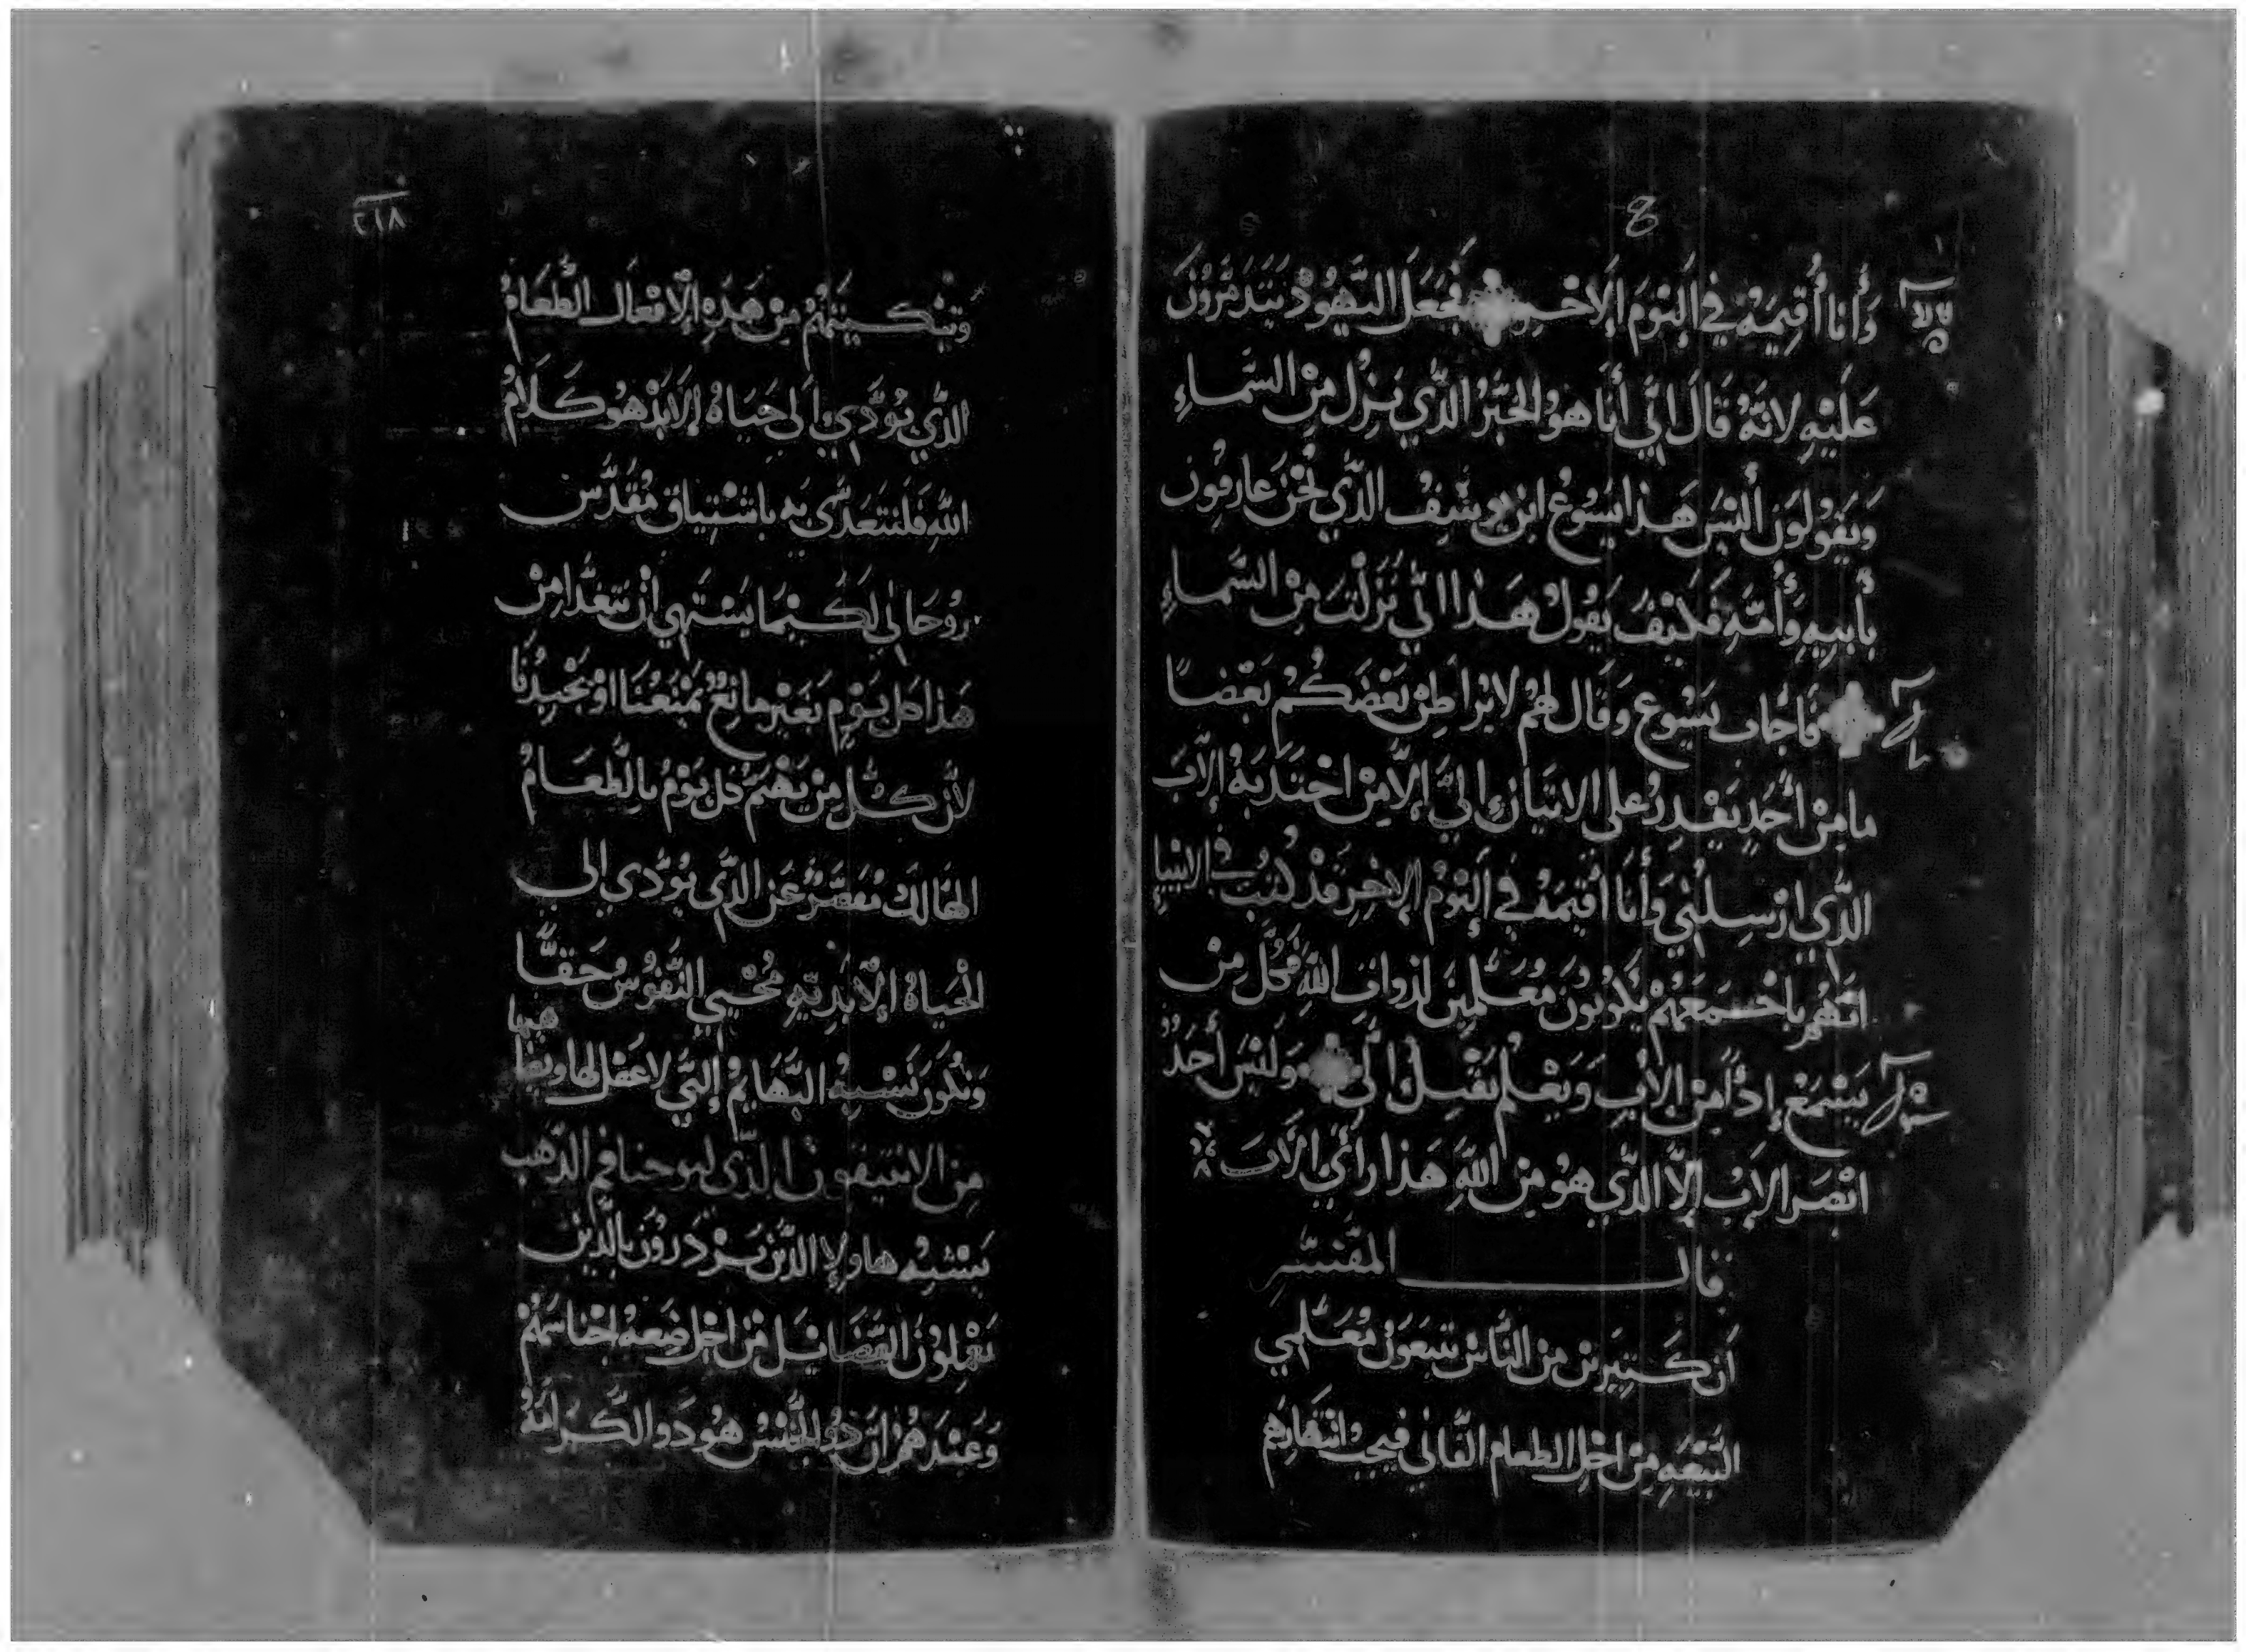 وَأَنا أُقِيمَهُ في اليَوْمَ الاخير فجَعَلَ اليَهُودْ يَتَدَمْرُونَ
عَلَيْهِ لانَّهُ قَالَ اني أنَا هوَ الخبْزُ الذّي نَزِلُ مِنْ السَّماءِ
وَيَقولونَ أليْسَ هَذا يَسُوعُ ابْن يوسِفُ الذّي نَحْنُ عارِفونَ
بأبيهِ وَأُمّهِ فَكَيْفَ يَقولُ هَذا اني نَزَلْتُ مِنْ السَّماءِ
فأجَابَ يَسُوع وَقَال لهُمْ لا يُراطِنْ بَعْضَكُمْ بَعْضًا
ما مِنْ أحَدٍ يَقْدِرُ على الاتيَانِ إليَّ إلاَّ مِنْ اجْتَدَبَهُ الآبَ
الذّي ارْسِلْني وَأنَا أُقيمَهُ في اليَوْمْ الاخِرِ قدْ كُتبَ في الانبياءِ
انّهُم باجْمَعَهُمْ يَكُونونَ مُعَلّمينَ لذوات اللهِ فَكُل مِنْ
يَسْمَعْ إذاً مِنْ الابِ وَيَعْلم يَقْبِلُ الَيَّ وَليْسَ أحَدُ
ابْصَر الابْ إلاّ الذّي هوُ مِن اللهَ هَذا رَأىَ الآبَ
قالـــــ المفَسّر
أن كَثيرين من النّاسْ يَتبَعَونْ مُعَلّمي
البَيْعَهِ مِنْ اجْل الطعام الفاني فيجب انْتِهارِهِم
٢١٨
وَتبْكيتَهُمْ مِنْ هَذهِ الافْعال الطعَامُ
الذّي يُؤَدّي إلى حَيَاةُ الابَدْ هُو كَلاَمُ
اللهِ فَلنَتغَدّى بِه باشْتِياق مُقَدّس
رُوحَاني لكَيْمَا يَشتَهي أنْ نتغدَّا مِنْ
هَذا كل يَوْمٍ بَغَيْر مانِعٌ يَمْنَعْنَا اوْ يَحْيدُنَا
لأنّ كُلّ مِنْ يَهْتَمُ كل يَوْمُ بالطعَامُ
الهَالك مُقَصّرُ عَن الذّي يُؤَدّي إلى
الحْيَاةُ الاَبَديّهِ مُحْيي النّفوُسْ حَقّاً
وَيَكُون يَشْبِهُ البَهَايمُ التي لا عَقل لها
مِن الذّي ليوحنا فم الذّهب
يَشْبِهُ هاولاِ الذّينَ يَزْدَروُن بالّذين
يَعْمِلوُنَ الفَضَايل مْن اجْل ضِعه اجْناسَهُمْ
وَعِنْدَهُمْ انّ ذُو الجِنْسُ هُو ذَو الكَرَامَةُ